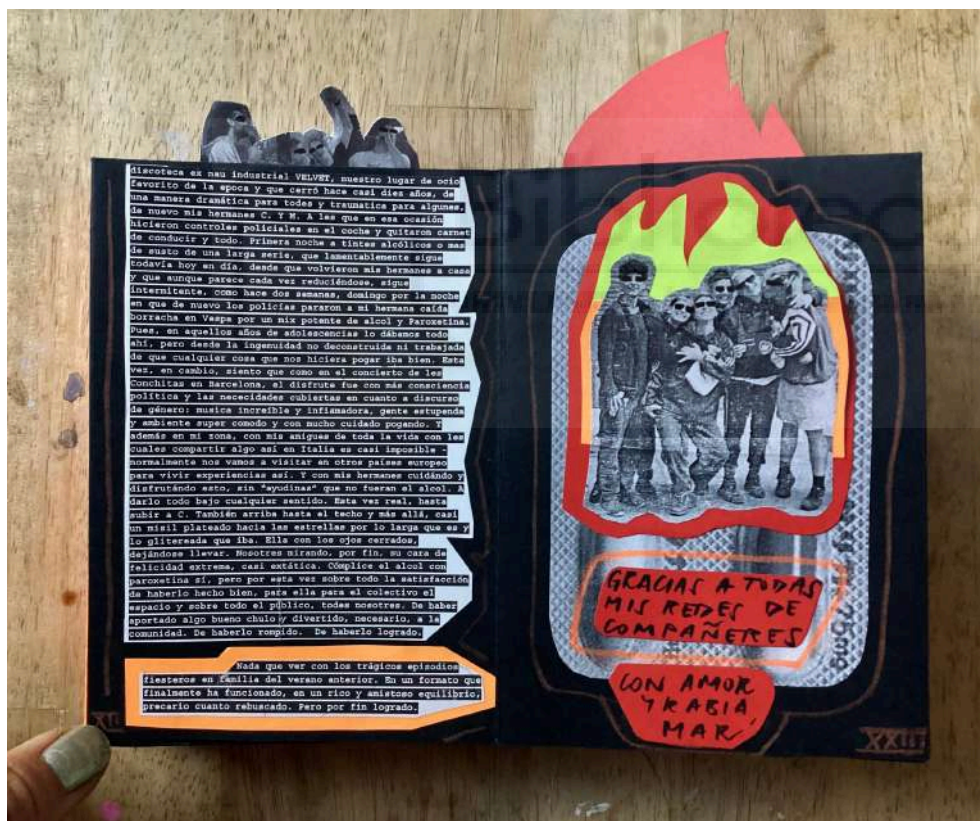 discoteca ex nau industrial VELVET, nuestro lugar de ocio
favorito de la epoca y que cerró hace casi diez años, de
una manera dramática para todes y traumatica para algunes,
de nuevo mis hermanes C. Y M. A les que en esa ocasión
hicieron controles policiales en el coche y quitaron carnet
de conducir y todo. Primera noche a tintes alcólicos o mas
de susto de una larga serie, que lamentablemente sigue
todavía hoy en día, desde que volvieron mis hermanes a casa
y que aunque parece cada vez reduciéndose, sigue
intermitente, como hace dos semanas, domingo por la noche
en que de nuevo los policías pararon a mi hermana caída
borracha en Vespa por un mix potente de alcol y Paroxetina.
Pues, en aquellos años de adolescencias lo dábamos todo
ahí, pero desde la ingenuidad no deconstruida ni trabajada
de que cualquier cosa que nos hiciera pogar iba bien. Esta
vez, en cambio, siento que como en el concierto de les
Conchitas en Barcelona, el disfrute fue con más consciencia
política y las nececidades cubiertas en cuanto a discurso
de género: musica increíble y inflamadora, gente estupenda
y ambiente super comodo y con mucho cuidado pogando. Y
además en mi zona, con mis amigues de toda la vida con les
cuales compartir algo asi en Italia es casi imposible -
normalmente nos vamos a visitar en otros países europeo
para vivir experiencias así. Y con mis hermanes cuidándo y
disfrutándo esto, sin "ayudinas" que no fueran el alcol. A
darlo todo bajo cualquier sentido. Esta vez real, hasta
subir a C. También arriba hasta el techo y más allá, casi
un misil plateado hacia las estrellas por lo larga que es y
lo glitereada que iba. Ella con los ojos cerrados,
dejándose llevar. Nosotres mirando, por fin, su cara de
felicidad extrema, casi extática. Cómplice el alcol con
paroxetina sí, pero por esta vez sobre todo la satisfacción
de haberlo hecho bien, para ella para el colectivo el
espacio y sobre todo el público, todes nosotres. De haber
aportado algo bueno chulo y divertido, necesario, a la
comunidad. De haberlo rompido. De haberlo logrado.
Nada que ver con los trágicos episodios
fiesteros en familia del verano anterior. En un formato que
finalmente ha funcionado, en un rico y amistoso equilibrio,
precario cuanto rebuscado. Pero por fin logrado.
GRACIAS A TODAS
MIS REDES DE
COMPAÑERES
CON AMOR
Y RABIA
MAR